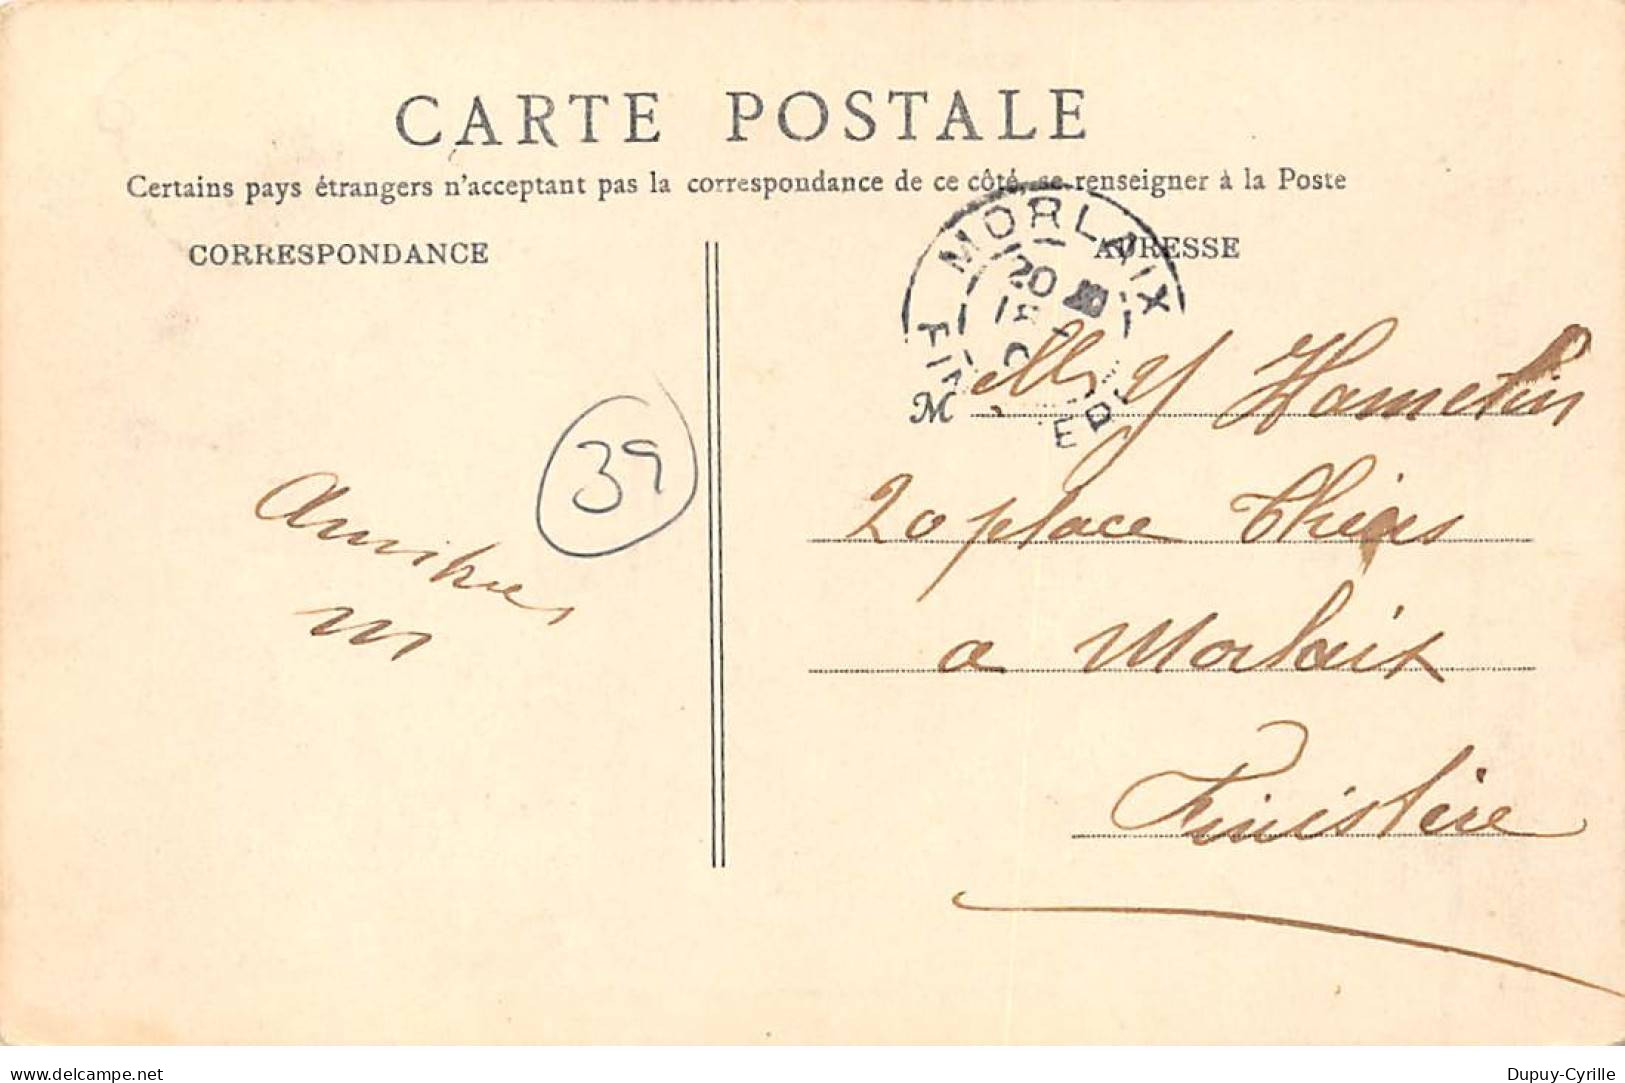 CARTE POSTALE
Certains pays étrangers n'acceptant pas la correspondance de ce côté, se renseigner à la Poste
CORRESPONDANCE
ADRESSE
MORLAIX
20
FIN
M elle Y Hamelin
39
20 place Thiers
Amitiés
a Morlaix
Finistère
www.delcampe.net
Dupuy-Cyrille